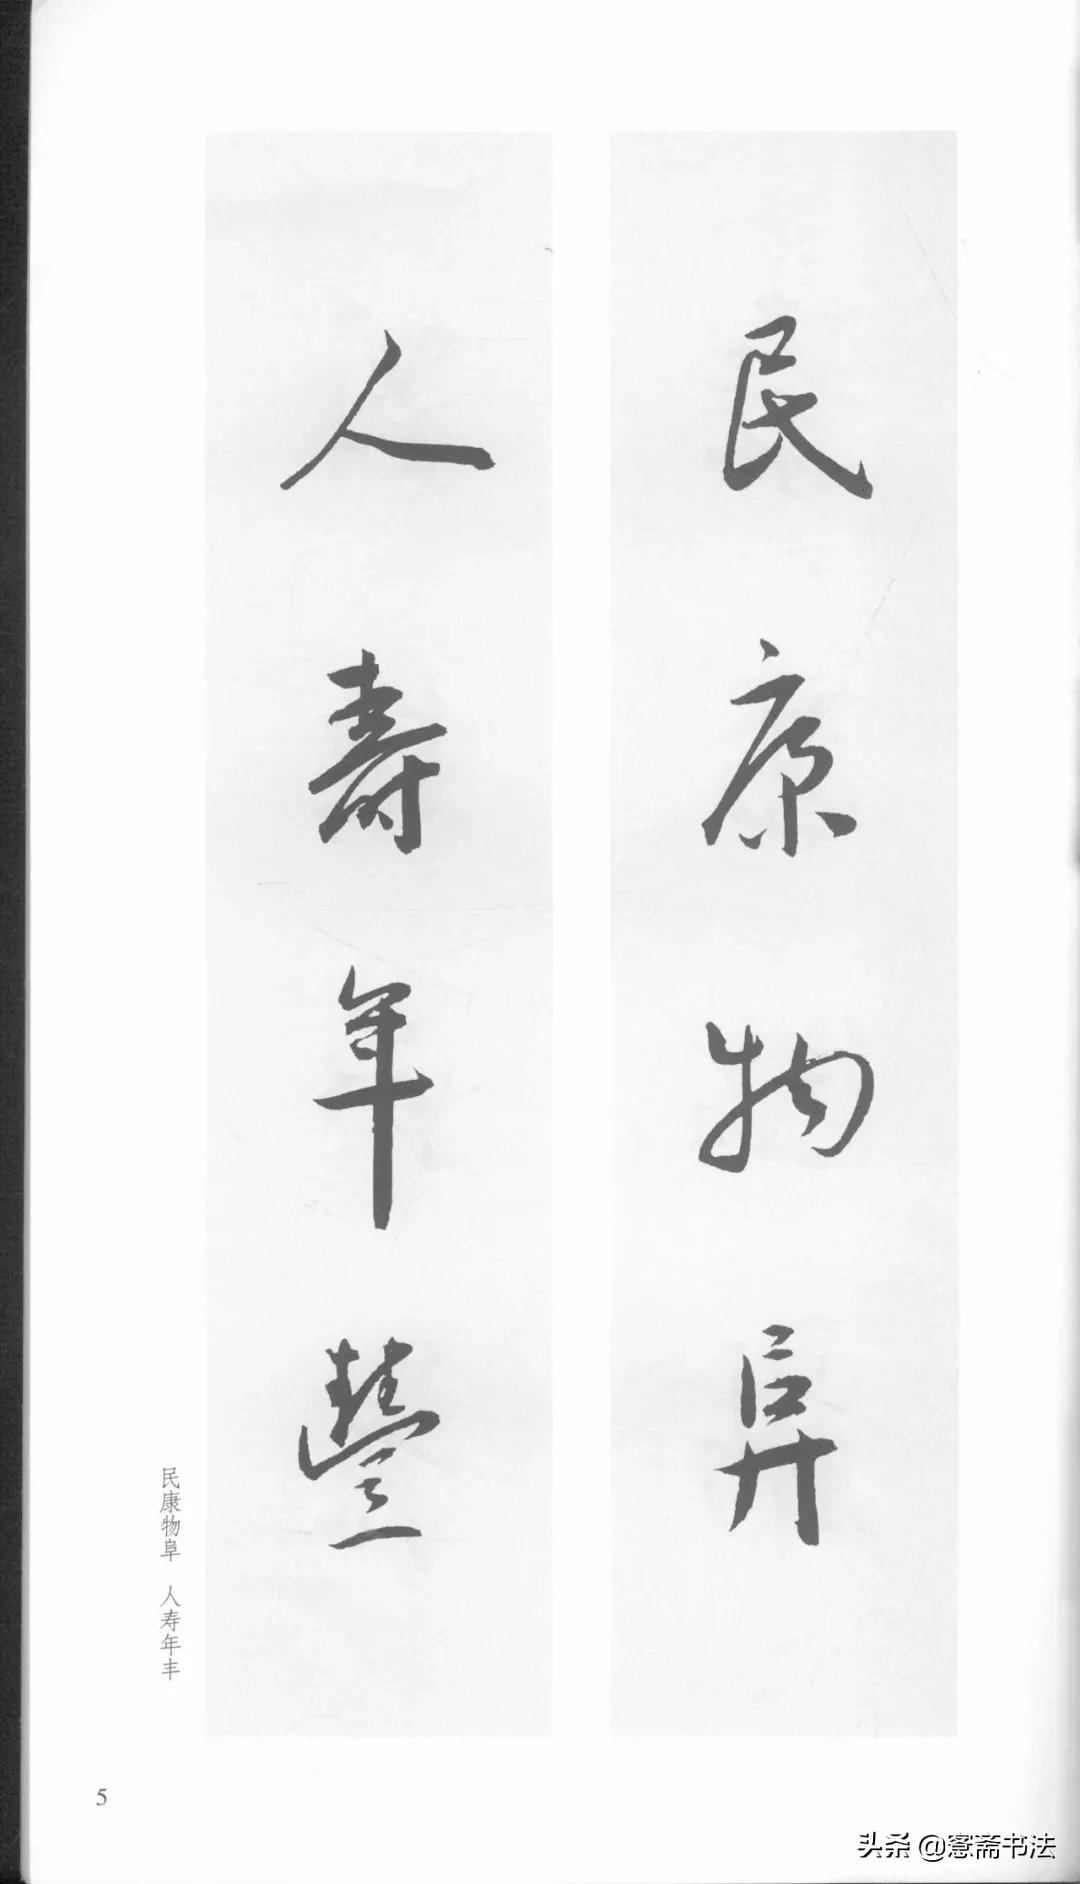 民康物阜
人壽年豐
民康物阜 人寿年丰
5
头条 @寋斋书法